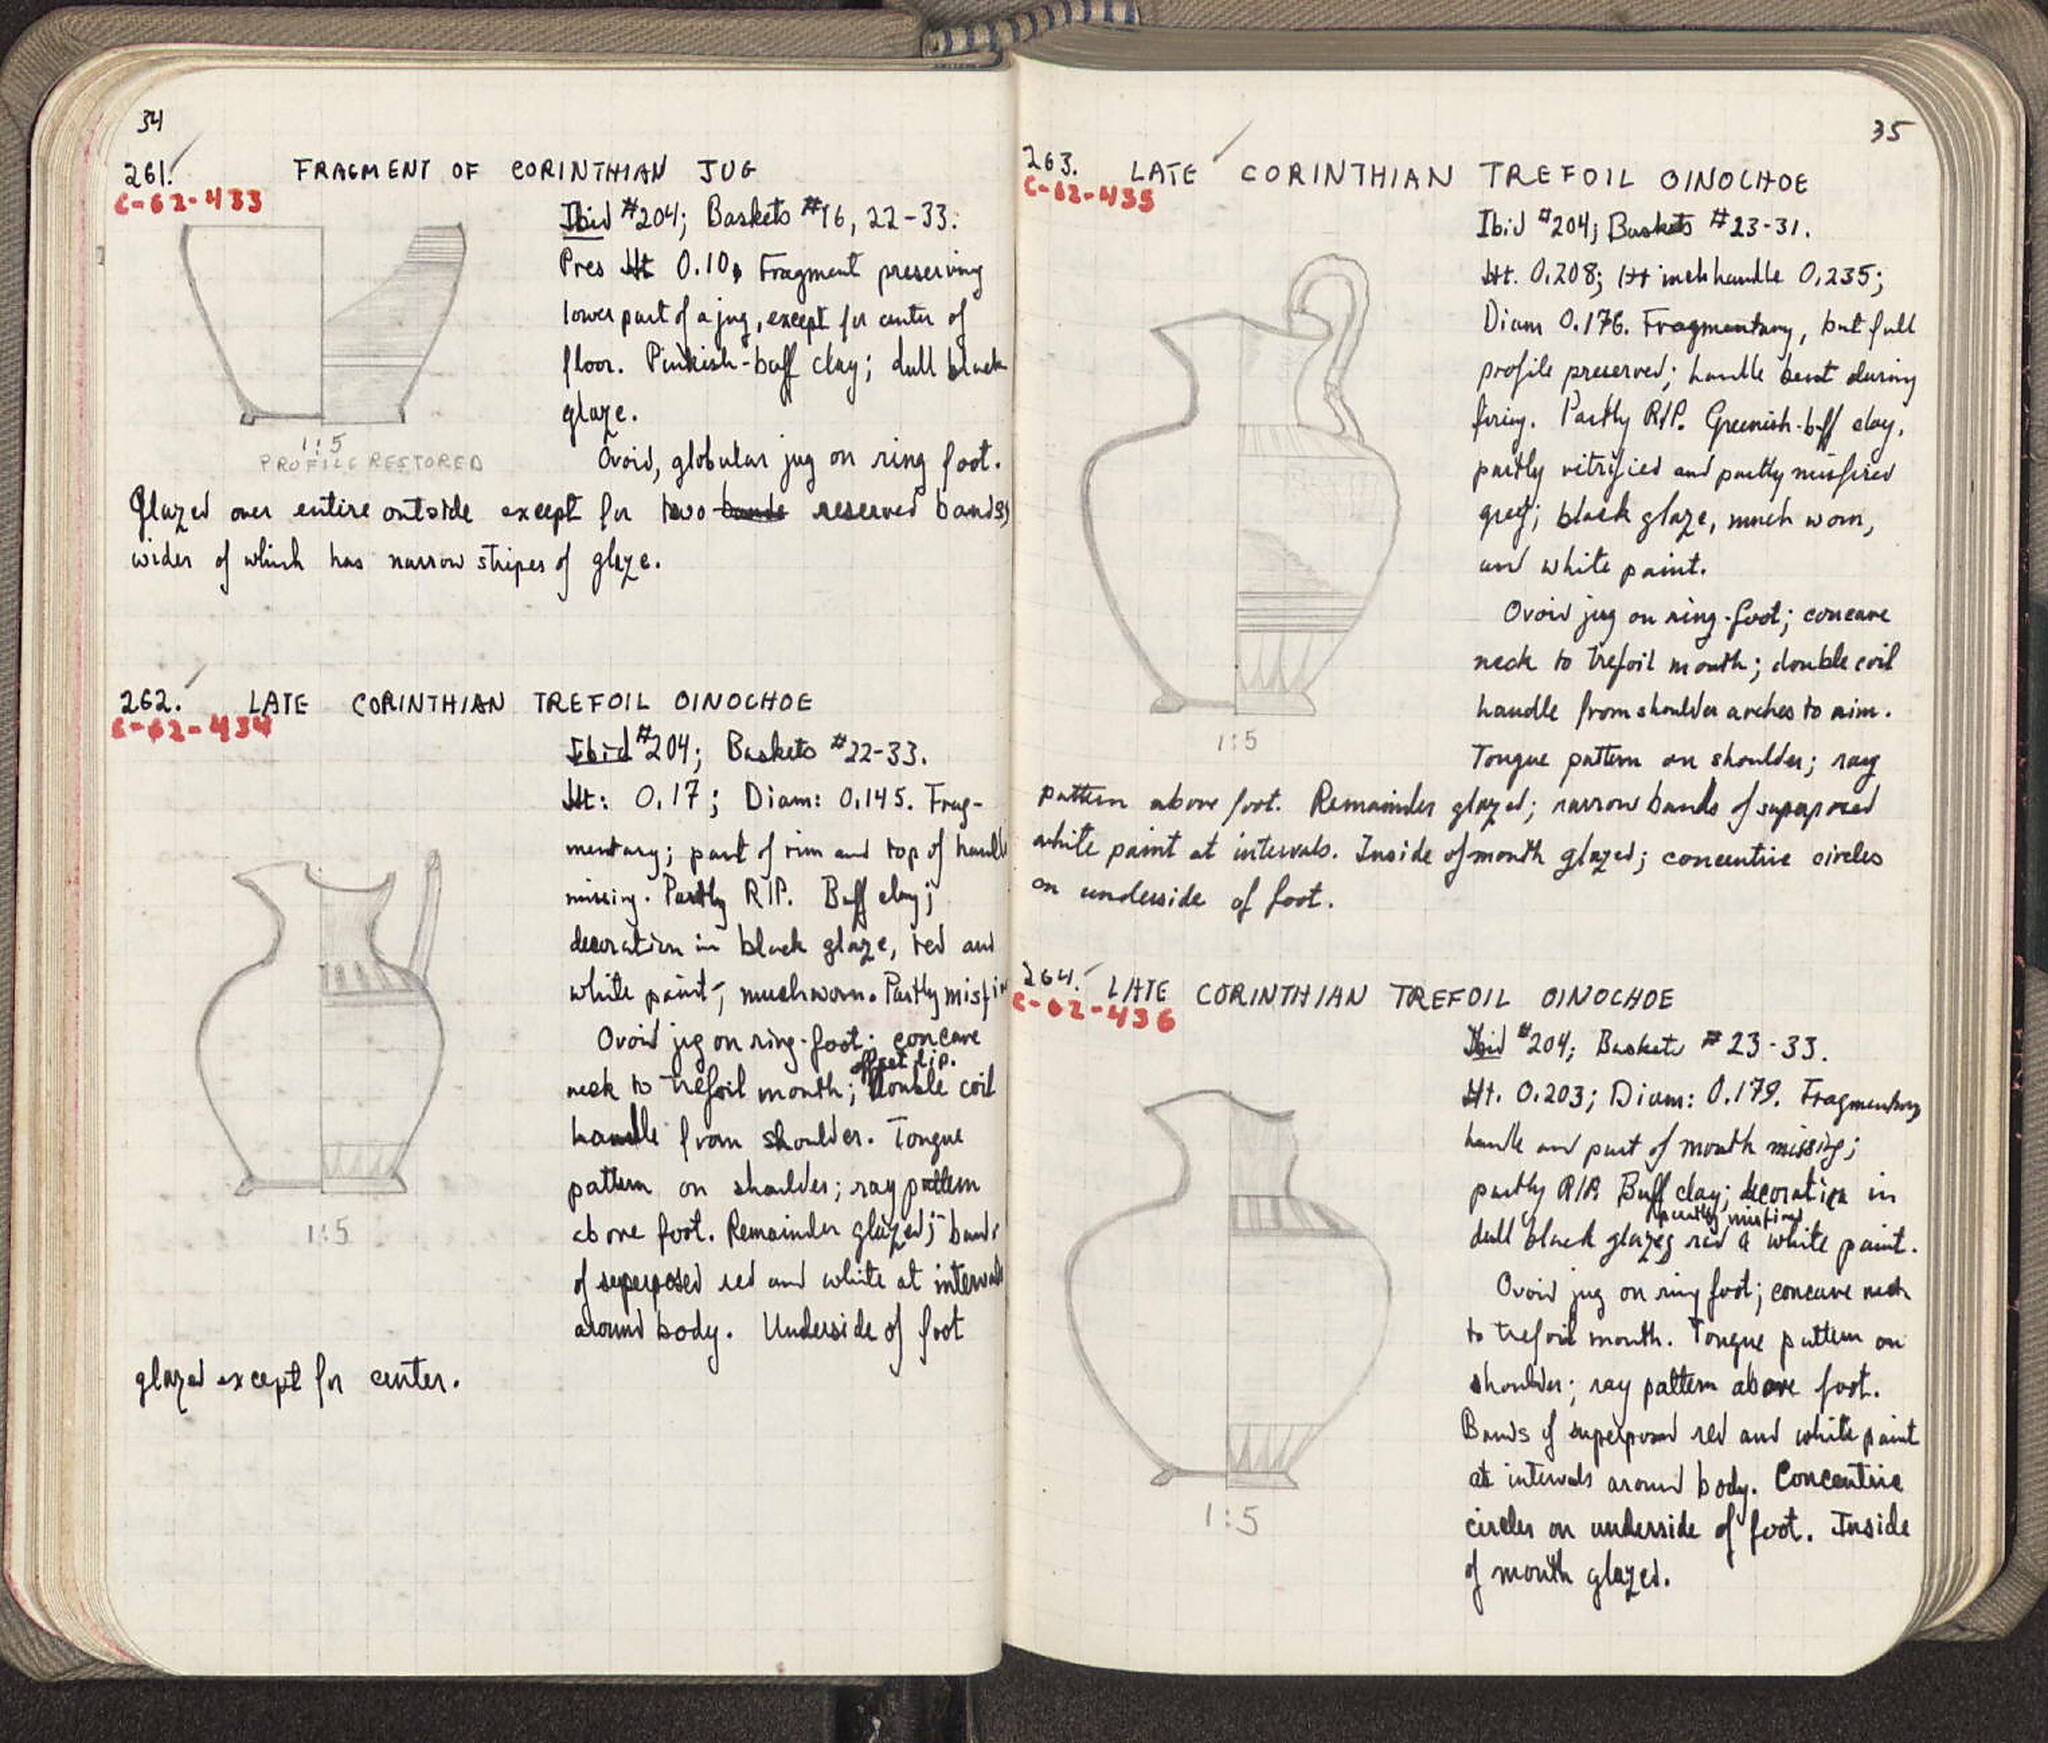 34
261.
FRAGMENT OF CORINTHIAN JUG
C-62-433
Ibid #204; Baskets #16, 22-33.
Pres Ht 0.10. Fragment preserving
lower part of a jug, except for center of
floor. Pinkish-buff clay; dull black
glaze.
1:5
PROFILE RESTORED
Ovoid, globular jug on ring foot.
Glazed over entire outside except for two bands reserved bands,
wider of which has narrow stripes of glaze.
262.
LATE CORINTHIAN TREFOIL OINOCHOE
C-62-434
Ibid #204; Baskets #22-33.
Ht: 0.17; Diam: 0.145. Frag-
mentary; part of rim and top of handle
missing. Partly RIP. Buff clay;
decoration in black glaze, red and
white paint, much worn. Partly misfi
Ovoid jug on ring-foot; concave
offset lip.
neck to trefoil mouth; Double coil
handle from shoulder. Tongue
pattern on shoulder; ray pattern
above foot. Remainder glazed; bands
of superposed red and white at intervals
around body. Underside of foot
1:5
glazed except for center.
35
263.
LATE CORINTHIAN TREFOIL OINOCHOE
C-62-435
Ibid #204; Baskets #23-31.
Ht. 0.208; Ht incl handle 0.235;
Diam 0.176. Fragmentary, but full
profile preserved; handle bent during
firing. Partly RIP. Greenish-buff clay,
partly vitrified and partly misfired
grey; black glaze, much worn,
and white paint.
Ovoid jug on ring-foot; concave
neck to trefoil mouth; double coil
handle from shoulder arches to rim.
1:5
Tongue pattern on shoulder; ray
pattern above foot. Remainder glazed; narrow bands of superposed
white paint at intervals. Inside of mouth glazed; concentric circles
on underside of foot.
264.
LATE CORINTHIAN TREFOIL OINOCHOE
C-62-436
Ibid #204; Baskets #23-33.
Ht. 0.203; Diam: 0.179. Fragmentary
handle and part of mouth missing;
partly RIP. Buff clay; decoration in
partly misfired
dull black glaze, red & white paint.
Ovoid jug on ring foot; concave neck
to trefoil mouth. Tongue pattern on
shoulder; ray pattern above foot.
Bands of superposed red and white paint
at intervals around body. Concentric
circles on underside of foot. Inside
of mouth glazed.
1:5